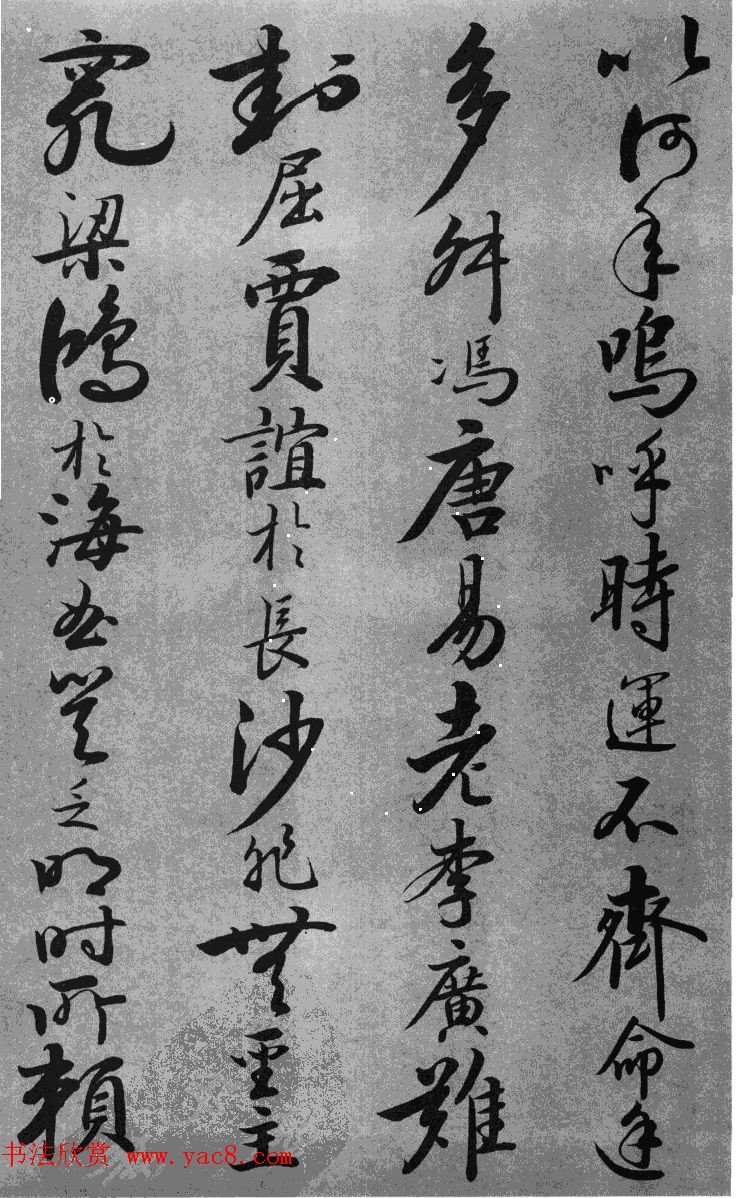 以何年嗚呼時運不齊命途
多舛馮唐易老李廣難
封屈賈誼於長沙非無聖主
竄梁鴻於海曲豈乏明時所賴
书法欣赏 www.yac8.com